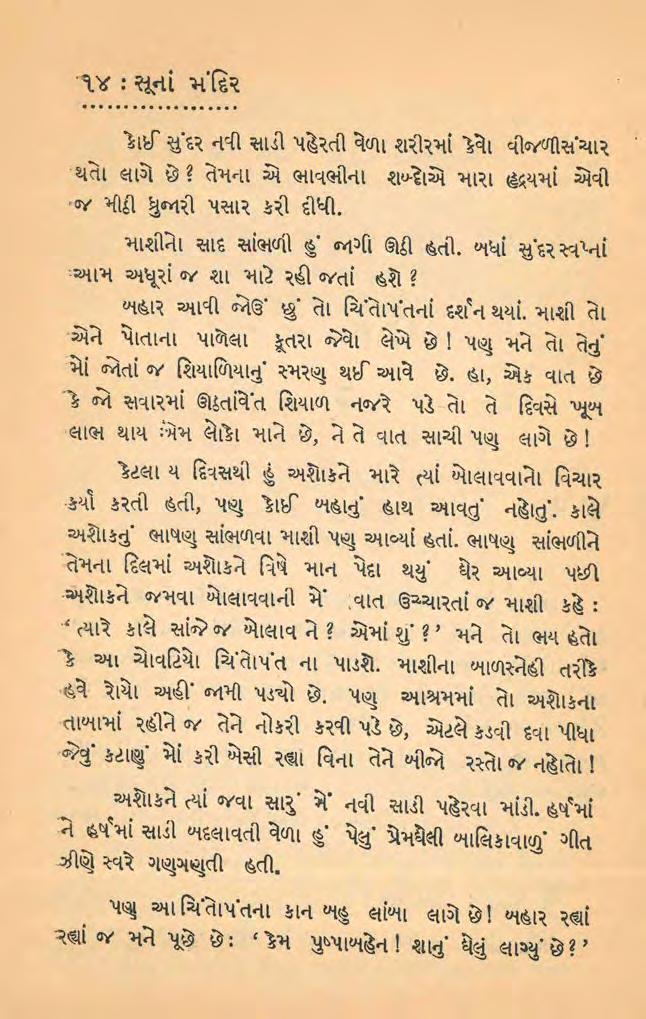 ૧૪ : સૂનાં મંદિર
કોઈ સુંદર નવી સાડી પહેરતી વેળા શરીરમાં કેવો વીજળીસંચાર
થતો લાગે છે? તેમના એ ભાવભીના શબ્દોએ મારા હૃદયમાં એવી
જ મીઠી ધ્રુજારી પસાર કરી દીધી.
માશીનો સાદ સાંભળી હું જાગી ઊઠી હતી. બધાં સુંદર સ્વપ્નાં
આમ અધૂરાં જ શા માટે રહી જતાં હશે ?
બહાર આવી જોઉં છું તો ચિંતોપંતનાં દર્શન થયાં. માશી તો
એને પોતાના પાળેલા કૂતરા જેવો લેખે છે ! પણ મને તો તેનું
મોં જોતાં જ શિયાળિયાનું સ્મરણ થઈ આવે છે. હા, એક વાત છે
કે જો સવારમાં ઊઠતાંવેંત શિયાળ નજરે પડે તો તે દિવસે ખૂબ
લાભ થાય એમ લોકો માને છે, ને તે વાત સાચી પણ લાગે છે !
કેટલા ય દિવસથી હું અશોકને મારે ત્યાં બોલાવવાનો વિચાર
કર્યા કરતી હતી, પણ કોઈ બહાનું હાથ આવતું નહોતું. કાલે
અશોકનું ભાષણ સાંભળવા માશી પણ આવ્યાં હતાં. ભાષણ સાંભળીને
તેમના દિલમાં અશોકને વિષે માન પેદા થયું ઘેર આવ્યા પછી
અશોકને જમવા બોલાવવાની મેં વાત ઉચ્ચારતાં જ માશી કહે :
‘ ત્યારે કાલે સાંજે જ બોલાવ ને ? એમાં શું ?’ મને તો ભય હતો
કે આ ચોવટિયો ચિંતોપંત ના પાડશે. માશીના બાળસ્નેહી તરીકે
હવે રોયો અહીં જામી પડ્યો છે. પણ આશ્રમમાં તો અશોકના
તાબામાં રહીને જ તેને નોકરી કરવી પડે છે, એટલે કડવી દવા પીધા
જેવું કટાણું મોં કરી બેસી રહ્યા વિના તેને બીજો રસ્તો જ નહોતો !
અશોકને ત્યાં જવા સારું મેં નવી સાડી પહેરવા માંડી. હર્ષમાં
ને હર્ષમાં સાડી બદલાવતી વેળા હું પેલું પ્રેમઘેલી બાલિકાવાળું ગીત
ઝીણે સ્વરે ગણગણતી હતી.
પણ આ ચિંતોપંતના કાન બહુ લાંબા લાગે છે! બહાર રહ્યાં
રહ્યાં જ મને પૂછે છે: ‘ કેમ પુષ્પાબહેન ! શાનું ઘેલું લાગ્યું છે ?’